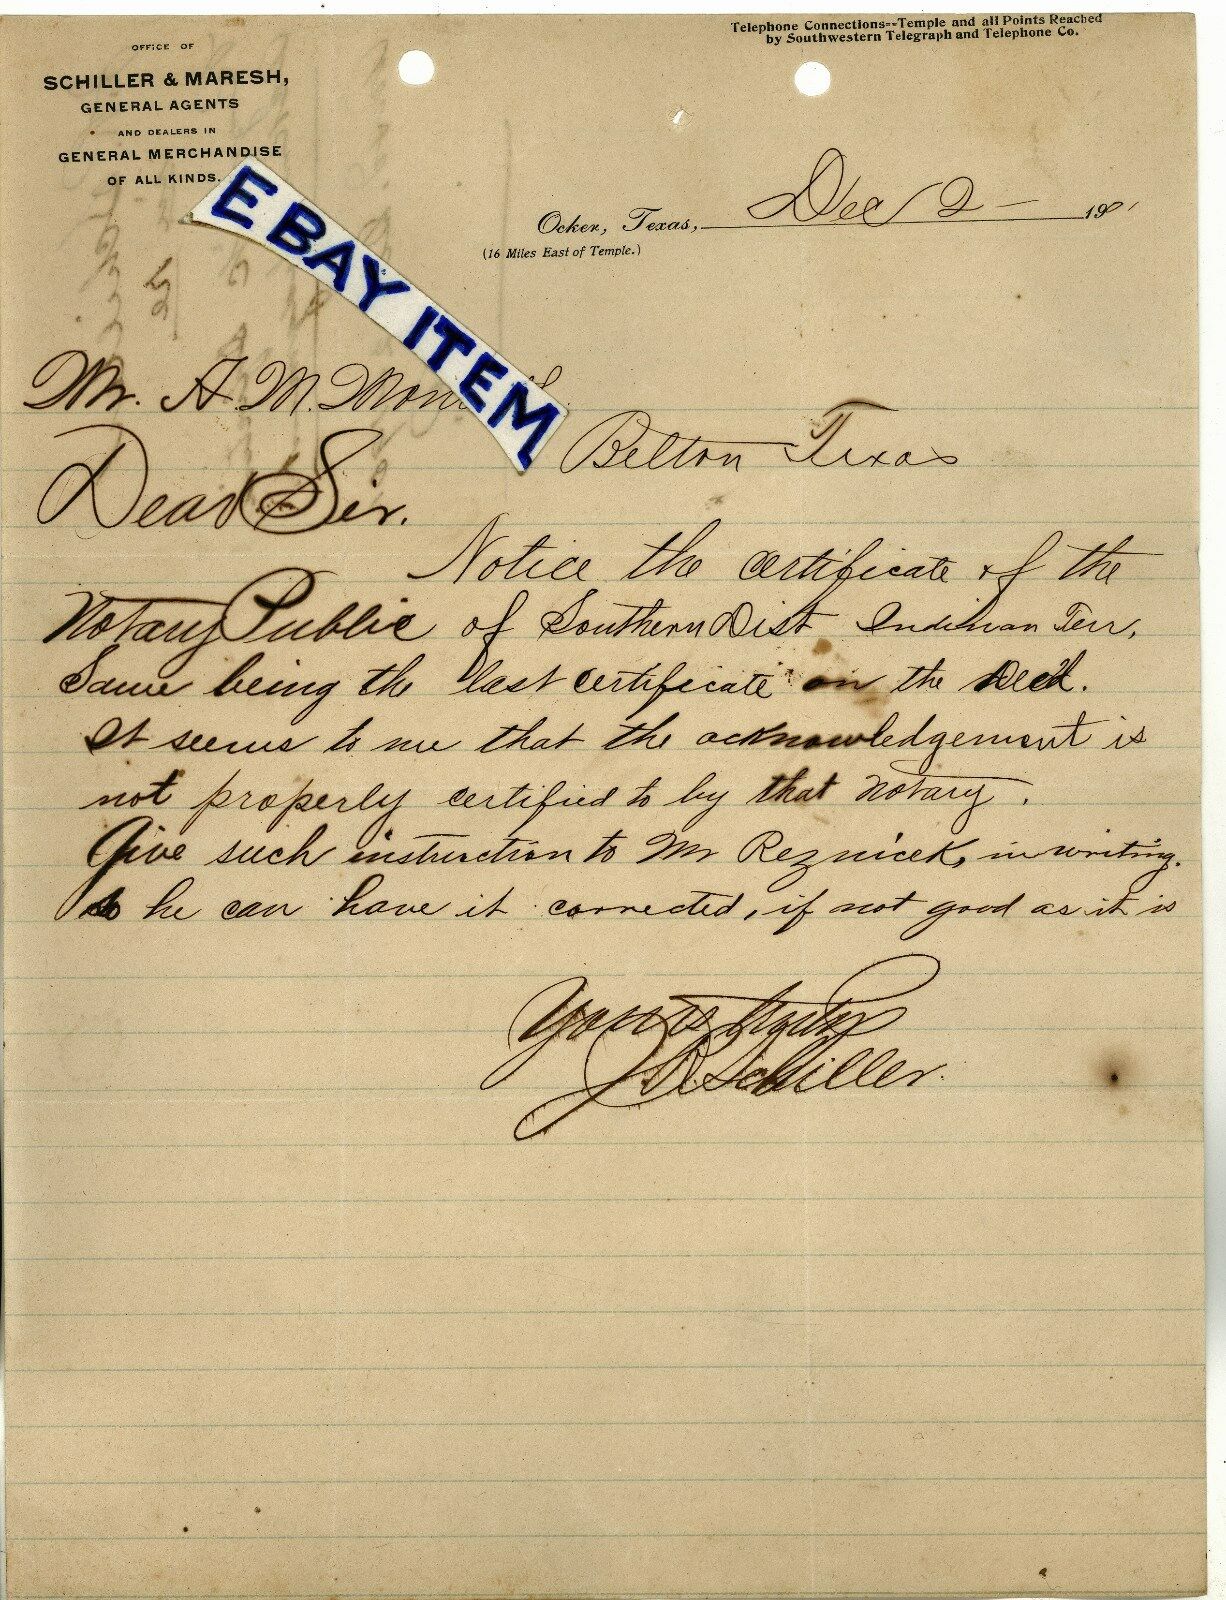 Telephone Connections--Temple and all Points Reached
by Southwestern Telegraph and Telephone Co.
OFFICE OF
SCHILLER & MARESH,
GENERAL AGENTS
AND DEALERS IN
GENERAL MERCHANDISE
OF ALL KINDS.
EBAY ITEM
Ocker, Texas, Dec 2 - 190
(16 Miles East of Temple.)
Mr. A. M.
Belton Texas
Dear Sir.
Notice the certificate of the
Notary Public of Southern Dist Indinan Terr,
Same being the last certificate on the Deed.
It seems to me that the acknowledgement is
not properly certified to by that Notary.
Give such instruction to Mr Reznicek, in writing.
so he can have it corrected, if not good as it is
Yours truly
Schiller.